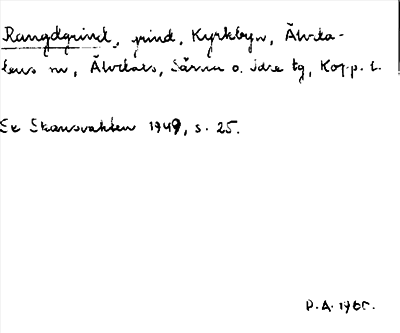 Rangdgrind, grind, Kyrkbyn, Älvda-
lens sn, Älvdals, Särna o. Idre tg, Kopp. l.
Se Skansvakten 1949, s. 25.
P.A. 196